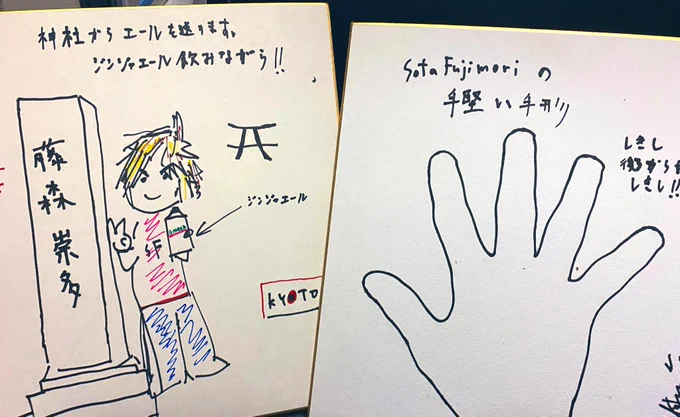 神社から エールを送ります。
ジンジャエール飲みながら!!
藤森崇多
ジンジャエール
SF
KYOTO
Sota Fujimori の
手堅い手形
しきし
しきし!!